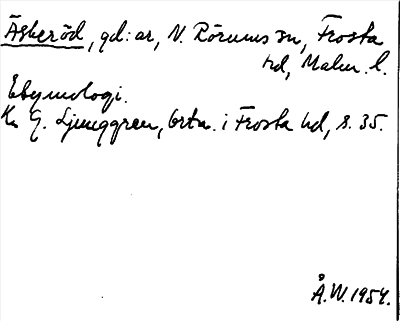 Äskeröd, gd:ar, N. Rörums sn, Frosta
hd, Malm. l.
Etymologi.
K. G. Ljunggren, Ortn. i Frosta hd, s. 35.
Å.W. 1954.